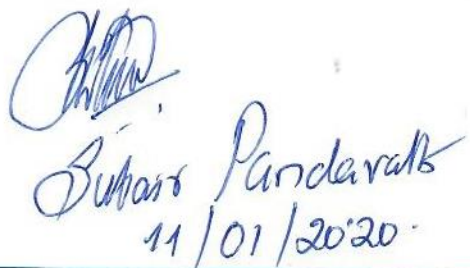 Subair Pandarath
11/01/2020.